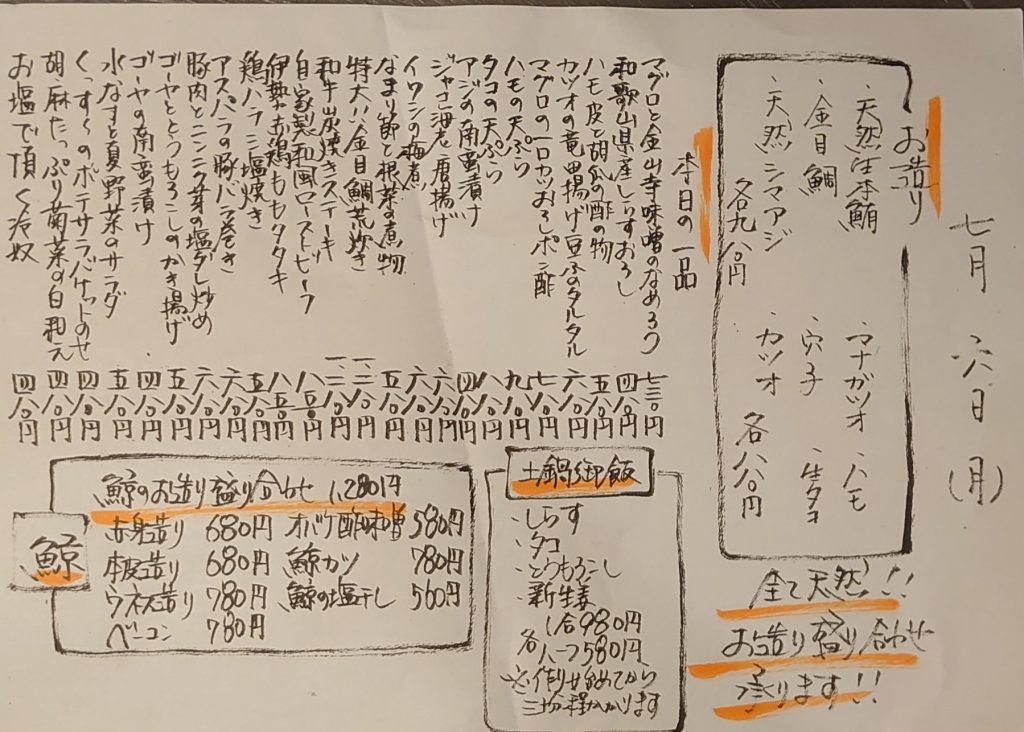 七月六日(月)
お造り
・天然生本鮪
・金目鯛
・天然シマアジ
各九八〇円
・マナガツオ・ハモ
・穴子・生タコ
・カツオ
各八八〇円
全て天然!!
お造り盛り合わせ
承ります!!
本日の一品
マグロと金山寺味噌のなめろう 七三〇円
和歌山県産しらすおろし 四八〇円
ハモ皮と胡瓜の酢の物 五八〇円
カツオの竜田揚げ豆ふのタルタル 六八〇円
マグロの一口カツおろしポン酢 七八〇円
ハモの天ぷら 九八〇円
タコの天ぷら 八八〇円
アジの南蛮漬け 四八〇円
ジャコ海老唐揚げ 六八〇円
イワシの梅煮 六八〇円
なまり節と根菜の煮物 五八〇円
特大!!金目鯛荒炊き 一二八〇円
和牛炭焼きステーキ 一二八〇円
自家製和風ローストビーフ 八八〇円
伊勢赤鶏ももタタキ 八五〇円
鶏ハラミ塩焼き 五八〇円
アスパラの豚バラ巻き 六八〇円
豚肉とニンニク芽の塩ダレ炒め 六八〇円
ゴーヤととうもろこしのかき揚げ 五八〇円
ゴーヤの南蛮漬け 四八〇円
水なすと夏野菜のサラダ 五八〇円
くっすんのポテサラバケットのせ 四八〇円
胡麻たっぷり菊菜の白和え 四八〇円
お塩で頂く冷奴 四八〇円
土鍋御飯
・しらす
・タコ
・とうもろこし
・新生姜
各
1合980円
ハーフ580円
※作り始めてから
三十分程かかります
鯨
鯨のお造り盛り合わせ 1,280円
赤身造り 680円 オバケ酢味噌 580円
本皮造り 680円 鯨カツ 780円
ウネス造り 780円 鯨の塩干し 560円
ベーコン 780円